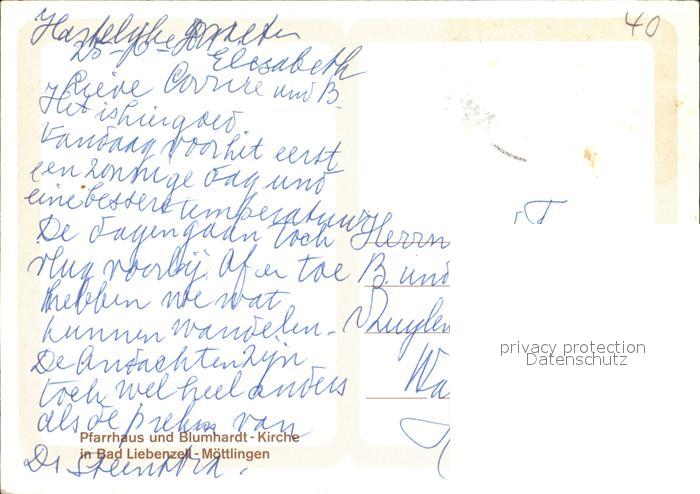 40
Hartelijke Groeten
Elisabeth
Lieve Corrie und B.
Het is hier goed
Vandaag voor hit eerst
een zonnige dag und
eine bessere temperatuur
De dagen gaan toch
vlug voorbij. Af en toe
hebben we wat
kunnen wandelen.
De Andachten zijn
toch wel heel anders
als de preken van
Ds Steenstra.
Pfarrhaus und Blumhardt-Kirche
in Bad Liebenzell-Möttlingen
Herrn
B. und
privacy protection
Datenschutz